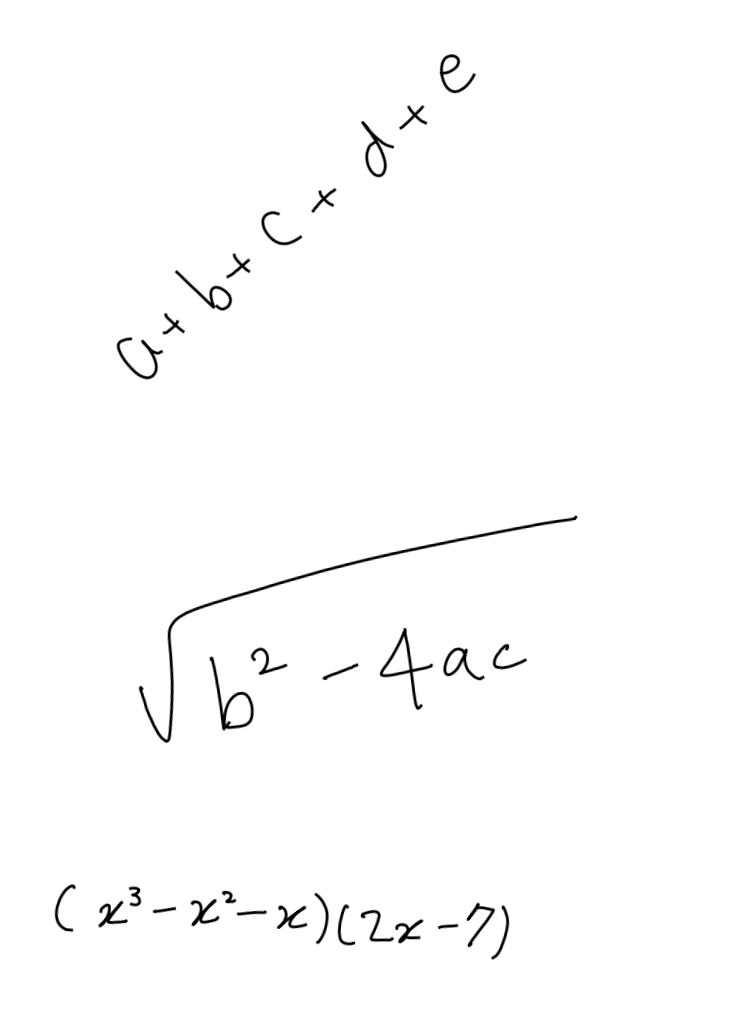 a+b+c+d+e
√(b² - 4ac)
(x³-x²-x)(2x-7)